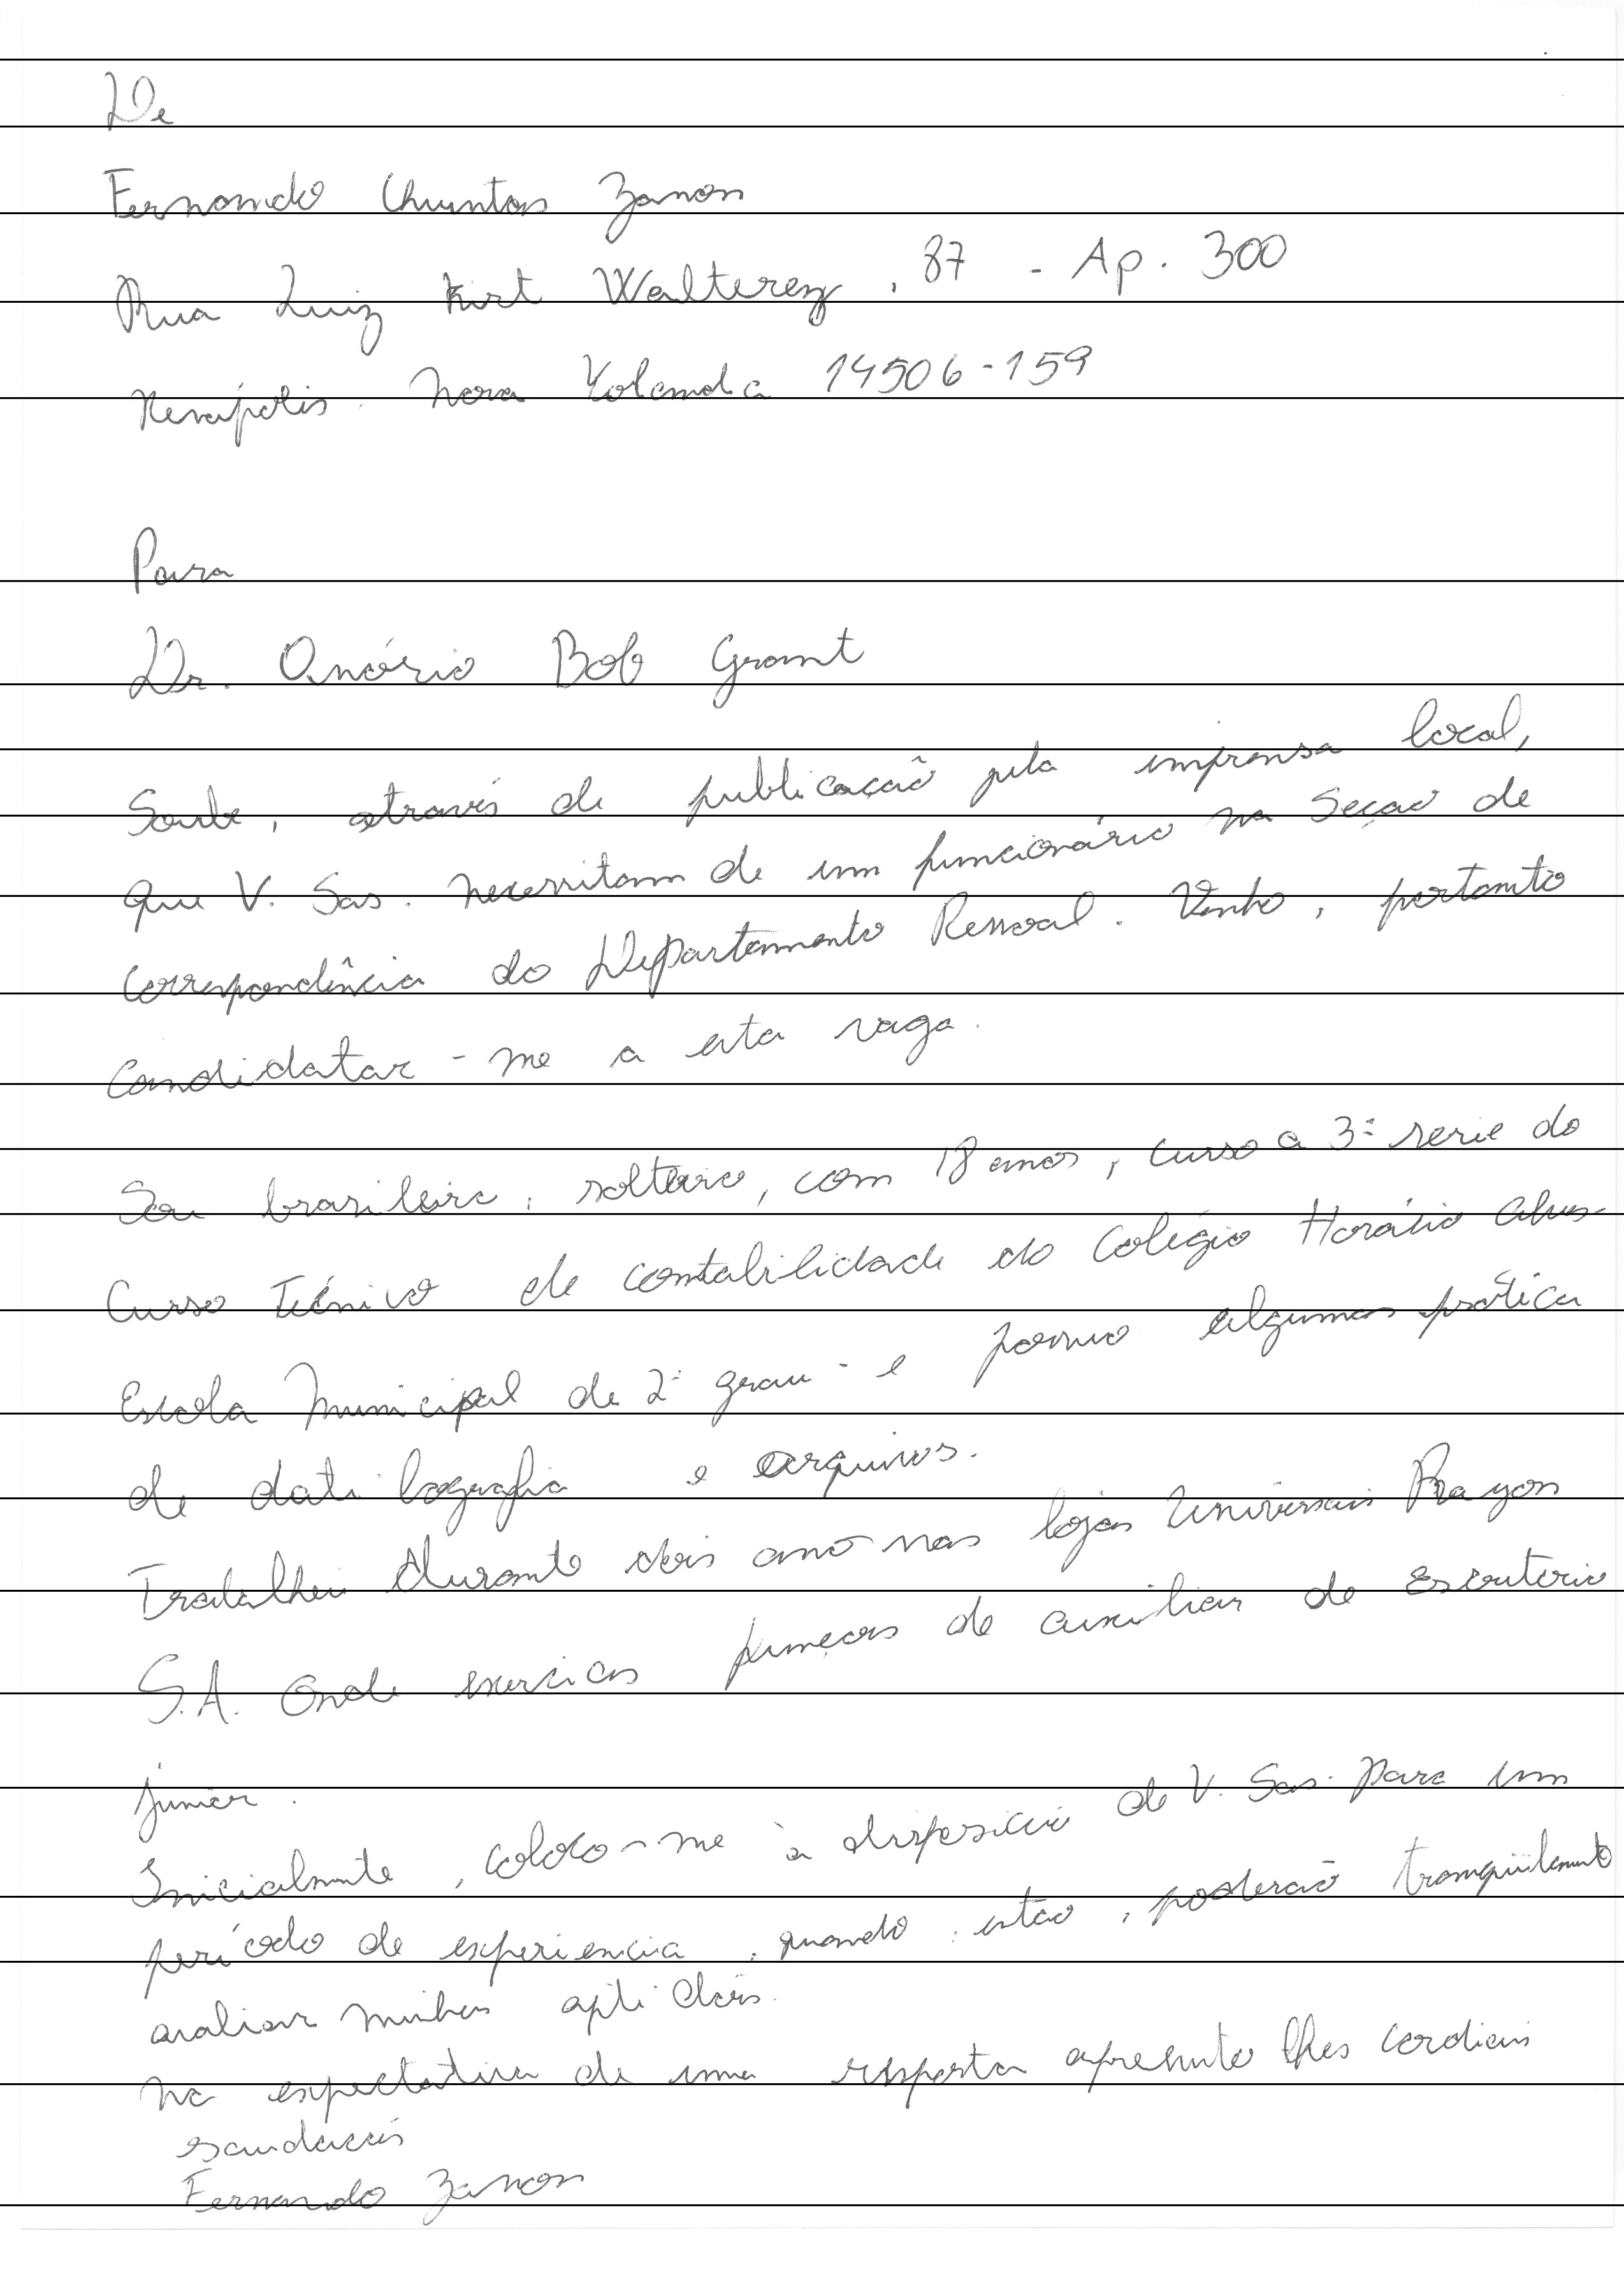 De
Fernando Chuntas Zanon
Rua Luiz Kirt Walterez, 87 - Ap. 300
Nova Yolanda 14506-159
Para
Dr. Onório Bob Grant
Soube, através de publicação pela imprensa local,
que V. Sas. necessitam de um funcionário na Seção de
correspondência do Departamento Pessoal. Venho, portanto
candidatar-me a esta vaga.
Sou brasileiro, solteiro, com 18 anos, curso a 3ª serie do
Curso Técnico de contabilidade do Colégio Horácio
Escola Municipal de 2º grau - e possuo algumas prática
de datilografia e arquivos.
Trabalhei durante dois ano nas lojas Universais Rayon
S.A. Onde exercicas funções de auxiliar de Escritorio
junior.
Inicialmente, coloco-me à disposição de V. Sas. para um
período de experiencia, quando, então, poderão tranqüilamente
avaliar minhas aptidões.
Na expectativa de uma resposta apresento lhes cordiais
saudações
Fernando Zanon